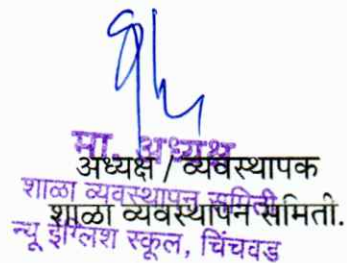 मा. अध्यक्ष
अध्यक्ष / व्यवस्थापक
शाळा व्यवस्थापन समिती
शाळा व्यवस्थापन समिती.
न्यू इंग्लिश स्कूल, चिंचवड